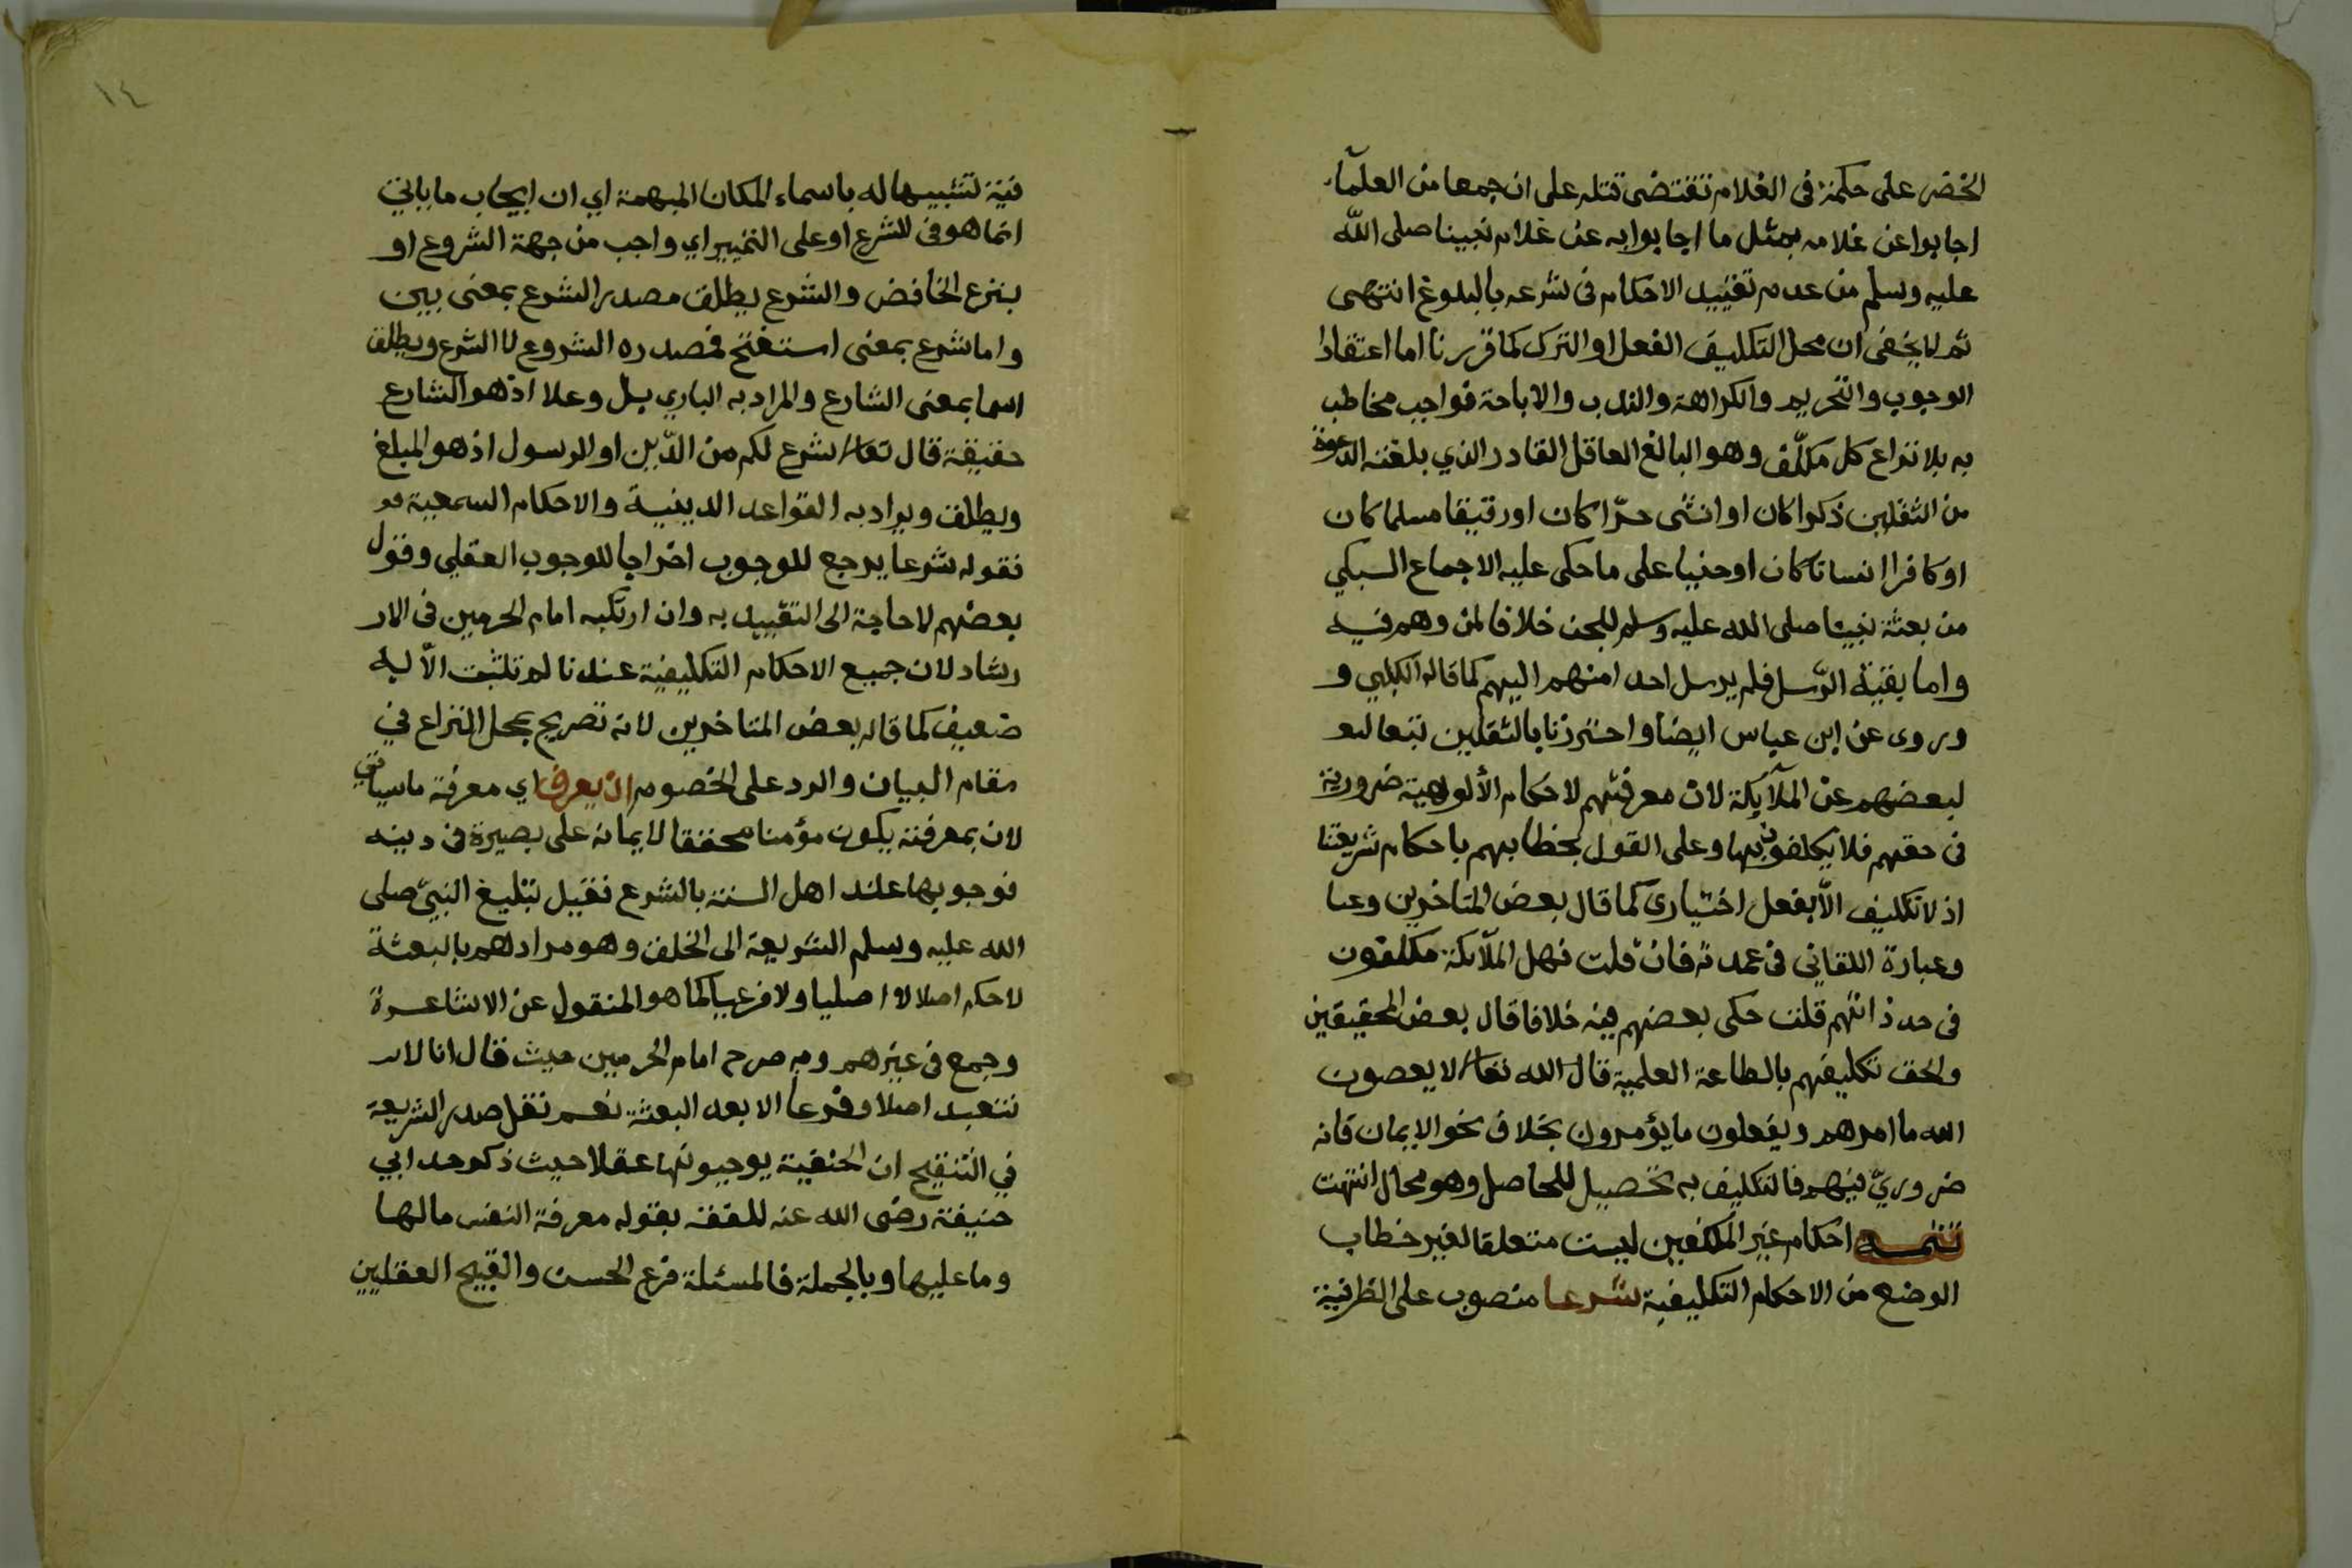 الخضر على حكمة في الغلام تقتضى قتله على ان جمعا من العلمآء
اجابوا عن غلامه بمثل ما اجابوا به عن غلام نبينا صلى الله
عليه وسلم من عدم تقييد الاحكام فى شرعه بالبلوغ انتهى
ثم لا يخفى ان محل التكليف الفعل او الترك كما قررنا اما اعتقاد
الوجوب والتحريم والكراهة والندب والاباحة فواجب مخاطب
به بلا نزاع كل مكلّف وهو البالغ العاقل القادر الذي بلغته الدعوة
من الثقلين ذكرا كان او انثى حرّا كان او رقيقا مسلما كان
او كافرا انسانا كان او جنيا على ما حكى عليه الاجماع السبكي
من بعثة نبينا صلى الله عليه وسلم للجن خلافا لمن وهم فيه
واما بقيّة الرّسل فلم يرسل احد منهم اليهم كما قاله الكلبي و
وروى عن ابن عباس ايضا واحترزنا بالثقلين تبعا
لبعضهم عن الملآيكة لان معرفتهم لاحكام الألوهية ضرورية
فى حقهم فلا يكلفون بها وعلى القول بخطابهم باحكام شريعتنا
اذ لا تكليف الّا بفعل اختيارى كما قال بعض المتاخرين وعبا
وعبارة اللقاني فى عمدته فان قلت فهل الملآئكة مكلفون
فى حد ذاتهم قلت حكى بعضهم فيه خلافا قال بعض المحقيقين
والحق تكليفهم بالطاعة العلمية قال الله تعا لا يعصون
الله ما امرهم ويفعلون ما يؤمرون بخلاف نحو الايمان فانه
ضروريّ فيهم فالتكليف به تحصيل للحاصل وهو محال انتهت
تتمه احكام غير المكلفين ليست متعلقا لغير خطاب
الوضع من الاحكام التكليفية شرعا منصوب على الظرفية
١٤
فيّة لتشبيهها له باسماء المكان المبهمة اي ان ايجاب ما ياتي
انما هو فى الشرع او على التمييز اي واجب من جهة الشروع او
بنزع الخافض والشرع يطلق مصدر الشرع بمعنى بين
واما شرع بمعنى استفتح فمصدره الشروع لا الشرع ويطلق
اسما بمعنى الشارع والمراد به الباري جل وعلا اذ هو الشارع
حقيقة قال تعا شرع لكم من الدّين او الرسول اذ هو المبلغ
ويطلق ويراد به القواعد الدينية والاحكام السمعية
فقوله شرعا يرجع للوجوب اخراجا للوجوب العقلي وقول
بعضهم لا حاجة الى التقييد به وان ارتكبه امام الحرمين فى الار
رشاد لان جميع الاحكام التكليفية عندنا لم تثبت الّا به
ضعيف كما قاله بعض المتاخرين لانه تصريح بمحل النزاع في
مقام البيان والرد على الخصوم ان يعرف اي معرفة ما سياتي
لان بمعرفته يكون مؤمنا محققا لايمانه على بصيرة فى دينه
فوجوبها عند اهل السنة بالشرع فقيل تبليغ النبيّ صلى
الله عليه وسلم الشريعة الى الخلق وهو مرادهم بالبعثة
لا حكم اصلا لا اصليا ولا فرعيا كما هو المنقول عن الاشاعرة
وجمع فى غيرهم وبه صرح امام الحرمين حيث قال انا لا
نتعبد اصلا وفرعا الا بعد البعثة نعم نقل صدر الشريعة
في التنقيح ان الحنفية يوجبونها عقلا حيث ذكر حد ابي
حنيفة رضى الله عنه للفقه بقوله معرفة النفس مالها
وما عليها وبالجملة فالمسئلة فرع الحسن والقبيح العقليين